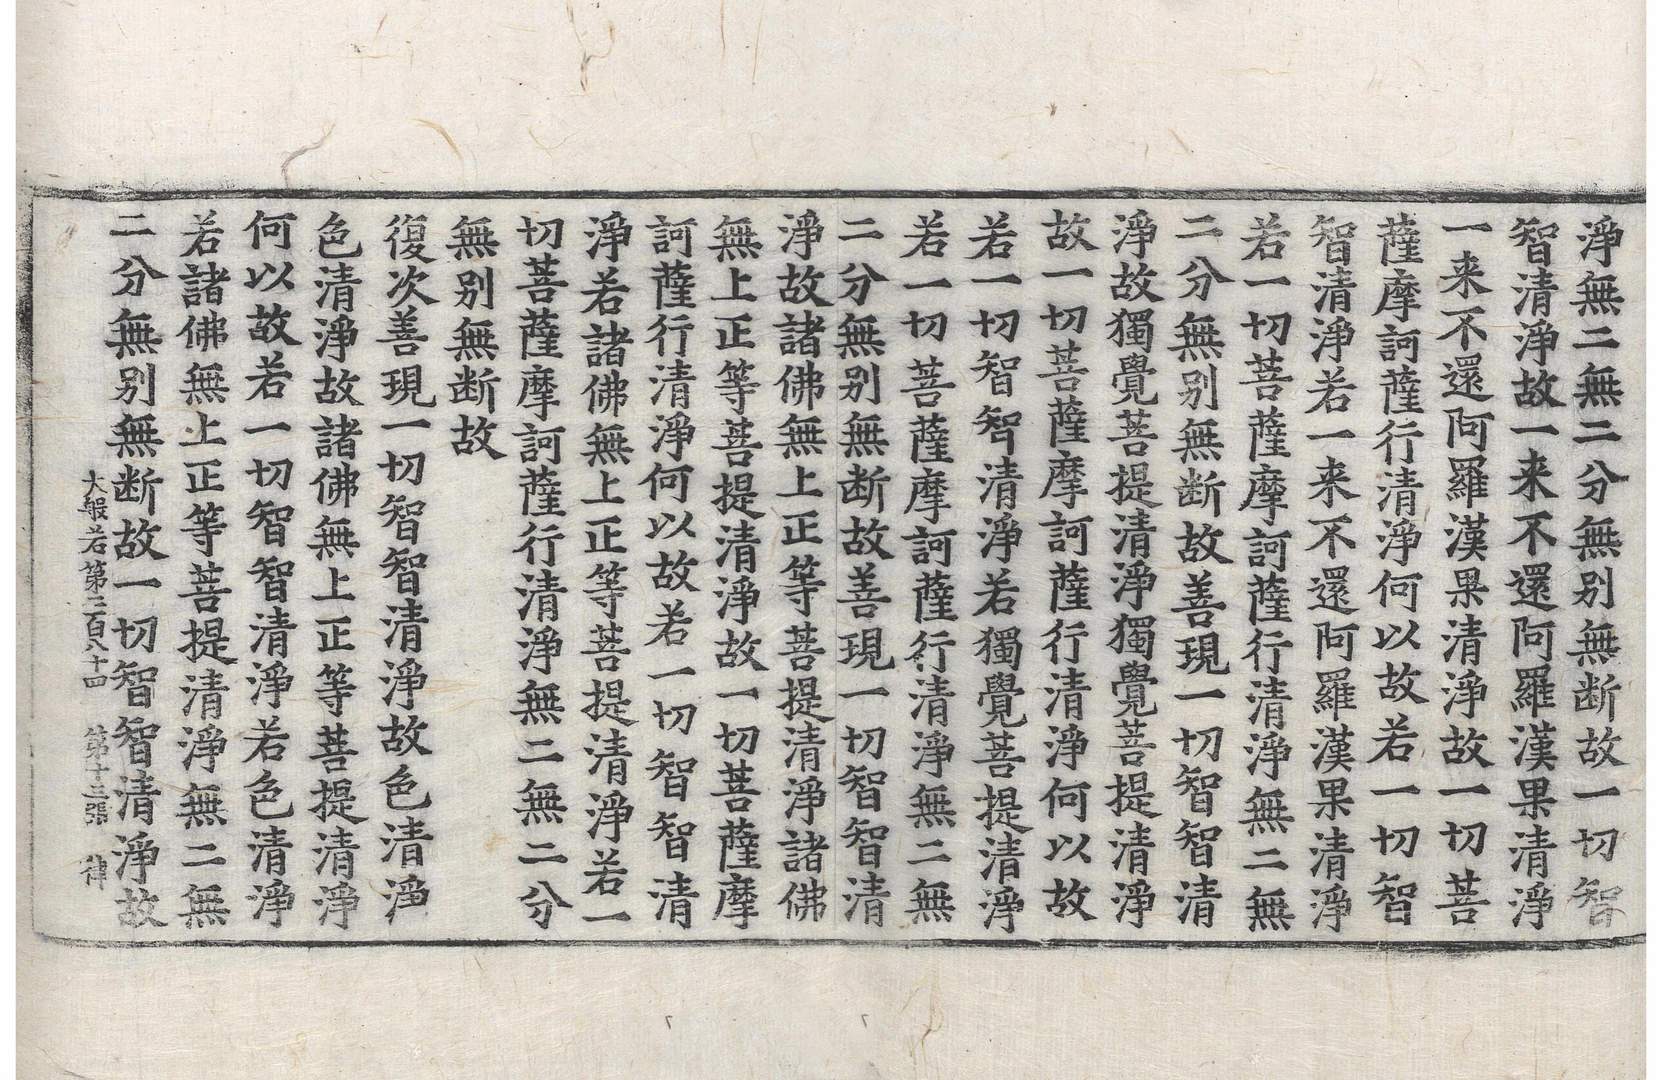 淨無二無二分無别無断故一切智
智清淨故一来不還阿羅漢果清淨
一来不還阿羅漢果清淨故一切菩
薩摩訶薩行清淨何以故若一切智
智清淨若一来不還阿羅漢果清淨
若一切菩薩摩訶薩行清淨無二無
二分無别無断故善現一切智智清
淨故獨覺菩提清淨獨覺菩提清淨
故一切菩薩摩訶薩行清淨何以故
若一切智智清淨若獨覺菩提清淨
若一切菩薩摩訶薩行清淨無二無
二分無别無断故善現一切智智清
淨故諸佛無上正等菩提清淨諸佛
無上正等菩提清淨故一切菩薩摩
訶薩行清淨何以故若一切智智清
淨若諸佛無上正等菩提清淨若一
切菩薩摩訶薩行清淨無二無二分
無别無断故
復次善現一切智智清淨故色清淨
色清淨故諸佛無上正等菩提清淨
何以故若一切智智清淨若色清淨
若諸佛無上正等菩提清淨無二無
二分無别無断故一切智智清淨故
大般若第二百八十四 第十三張 律